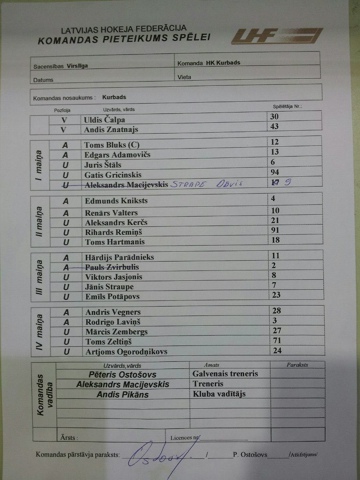 LATVIJAS HOKEJA FEDERĀCIJA
KOMANDAS PIETEIKUMS SPĒLEI
LHF
Sacensības Virslīga Komanda HK Kurbads
Datums Vieta
Komandas nosaukums : Kurbads
Pozīcija Uzvārds, vārds Spēlētāja Nr.
V Uldis Čalpa 30
V Andis Znatnajs 43
I maiņa
A Toms Bluks (C) 12
A Edgars Adamovičs 13
U Juris Štāls 6
U Gatis Gricinskis 94
U Aleksandrs Macijevskis 17 9
II maiņa
A Edmunds Kniksts 4
A Renārs Valters 10
U Aleksandrs Kerčs 21
U Rihards Remiņš 91
U Toms Hartmanis 18
III maiņa
A Hārdijs Parādnieks 11
A Pauls Zvirbulis 2
U Viktors Jasjonis 8
U Jānis Straupe 7
U Emils Potāpovs 23
IV maiņa
A Andris Vegners 28
A Rodrigo Laviņš 3
U Mārcis Zembergs 27
U Toms Zeltiņš 71
U Artjoms Ogorodņikovs 24
Komandas vadība
Uzvārds,vārds Amats Paraksts
Pēteris Ostošovs Galvenais treneris
Aleksandrs Macijevskis Treneris
Andis Pikāns Kluba vadītājs
Ārsts Licences nr/
Komandas pārstāvja paraksts: / P. Ostošovs /Atšifrējums/